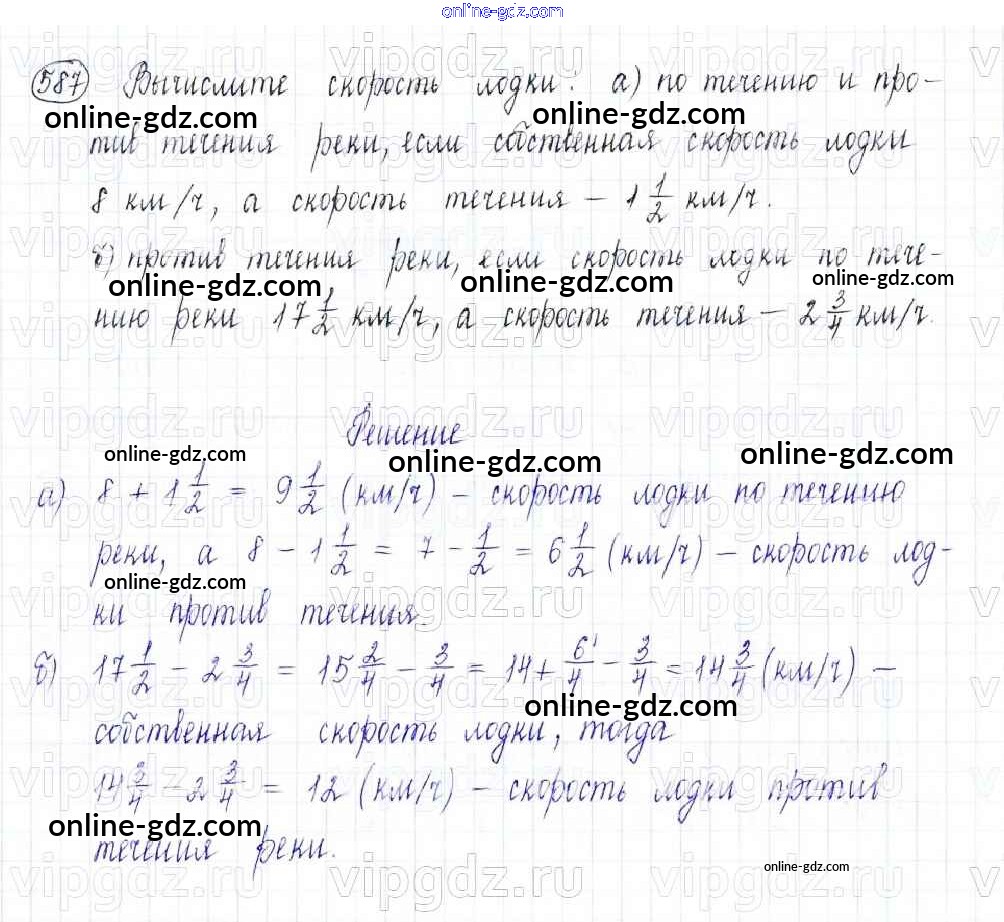 online-gdz.com
587 Вычислите скорость лодки: а) по течению и про-
online-gdz.com online-gdz.com
тив течения реки, если собственная скорость лодки
8 км/ч, а скорость течения – 1 1/2 км/ч.
б) против течения реки, если скорость лодки по тече-
online-gdz.com online-gdz.com online-gdz.com
нию реки 17 1/2 км/ч, а скорость течения – 2 3/4 км/ч.
vipgdz.ru vipgdz.ru vipgdz.ru
Решение
online-gdz.com online-gdz.com online-gdz.com
а) 8 + 1 1/2 = 9 1/2 (км/ч) – скорость лодки по течению
реки, а 8 - 1 1/2 = 7 - 1/2 = 6 1/2 (км/ч) – скорость лод-
online-gdz.com
ки против течения.
б) 17 1/2 - 2 3/4 = 15 2/4 - 3/4 = 14 + 6/4 - 3/4 = 14 3/4 (км/ч) –
online-gdz.com
собственная скорость лодки, тогда
14 3/4 - 2 3/4 = 12 (км/ч) – скорость лодки против
online-gdz.com
течения реки.
online-gdz.com